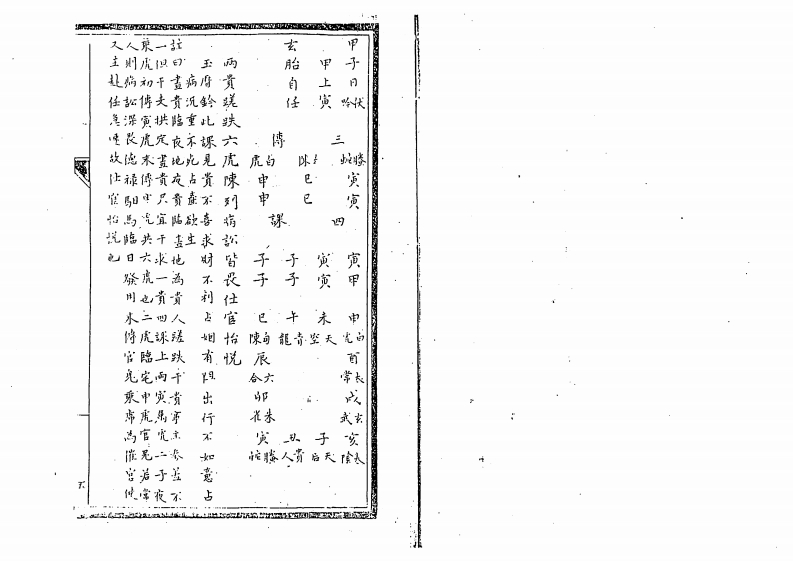 甲子日伏吟
甲上寅
玄胎 自任
三傳
螣蛇 寅 寅
勾陳 巳 巳
白虎 申 申
四課
子 子 寅 寅
子 子 寅 甲
巳 午 未 申
勾陳 青龍 天空 白虎
辰 酉
六合 太常
卯 戌
朱雀 玄武
寅 丑 子 亥
螣蛇 貴人 天后 太陰
兩貴蹉跌六虎陳列病訟皆畏仕官怡悅
玉曆鈐此課見貴不喜求財不利占婚有阻出行不如意占
病沉重不死占產欲生
註曰晝貴臨夜地夜貴臨晝地為貴人蹉跌干貴參差不
一但干夫拱定晝貴只宜干求一貴四課上兩寅為虎二子夜
乘虎初傳寅虎末傳申虎共六虎也二虎臨宅申虎官鬼若常
人則病訟深畏德祿馹馬臨日發用末傳官鬼乘虎為催官使
又主赴任急速故仕宦怡悅也